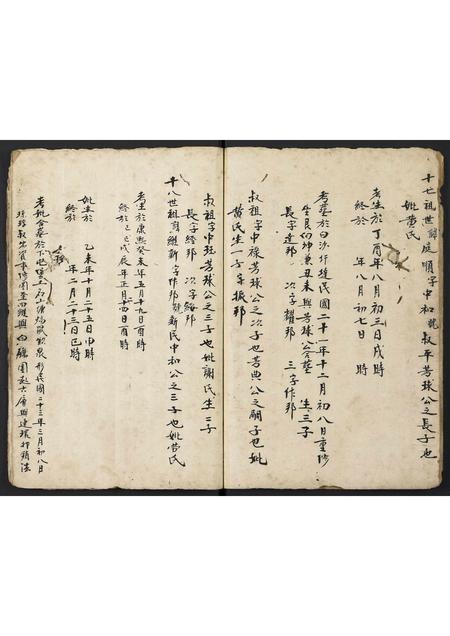 十七祖世諱庭順字中和號叔平芳球公之長子也
妣黃氏
考生於丁酉年八月初三日戌時
終於 年八月初七日 時
考墓於白沙圩邊民國二十一年十二月初八日重修
坐艮向坤兼丑未與芳球公合塋 生三子
長字達邦 次字耀邦 三字作邦
叔祖字中祿芳球公之次子也芳典公之嗣子也妣
黃氏生一子字振邦
叔祖字中珏芳球公之三子也妣謝氏生二子
長字經邦 次字綏邦
十八世祖諱維新字作邦號新民中和公之三子也妣黃氏
考生於康熙癸未年五月十九日酉時
終於 戊辰年正月十四日酉時
妣生於 乙未年十月二十五日申時
終於 年二月二十三日巳時
考妣合墓於下 形民國二十三年三月初八日